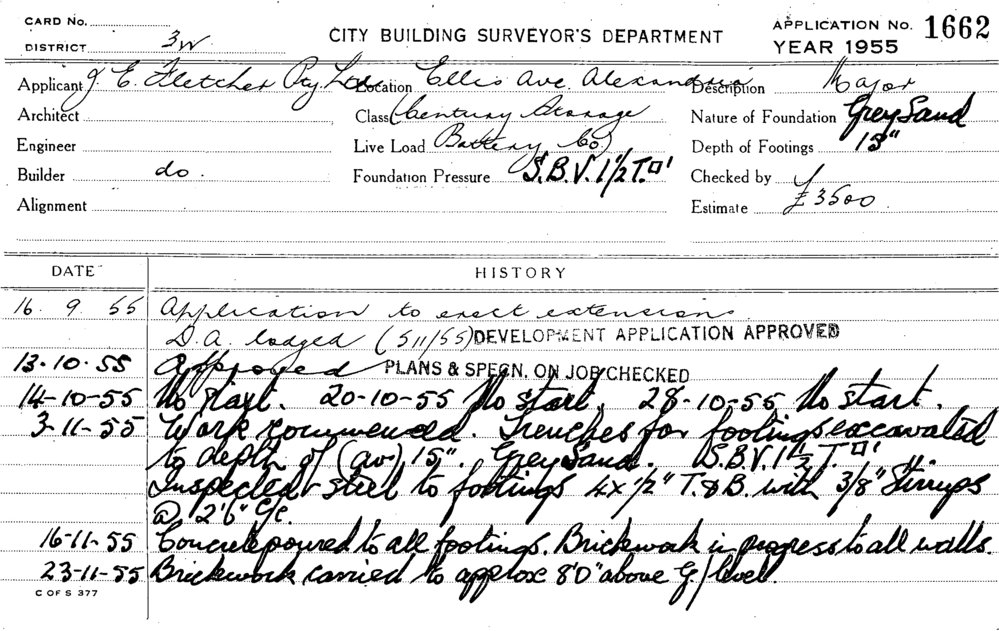 CARD No.
DISTRICT 3W
CITY BUILDING SURVEYOR'S DEPARTMENT
APPLICATION No. 1662
YEAR 1955
Applicant J. E. Fletcher Pty. Ltd. Location Ellis Ave. Alexandria Description Major
Architect Class (Century Storage Nature of Foundation Grey Sand
Engineer Live Load Battery Co) Depth of Footings 15"
Builder do. Foundation Pressure S.B.V. 1½ T.□' Checked by
Alignment Estimate £3500
DATE HISTORY
16. 9. 55 Application to erect extensions.
D.A. lodged (511/55) DEVELOPMENT APPLICATION APPROVED
13-10-55 Approved PLANS & SPECN. ON JOB CHECKED
14-10-55 No start. 20-10-55 No start. 28-10-55 No start.
3-11-55 Work commenced. Trenches for footings excavated
to depth of (av) 15". Grey Sand. S.B.V. 1½ T.□'
Inspected steel to footings 4x½" T.&B. with 3/8" Stirrups
@ 2'6" C/c.
16-11-55 Concrete poured to all footings. Brickwork in progress to all walls.
23-11-55 Brickwork carried to approx 8'0" above G/level.
C OF S 377